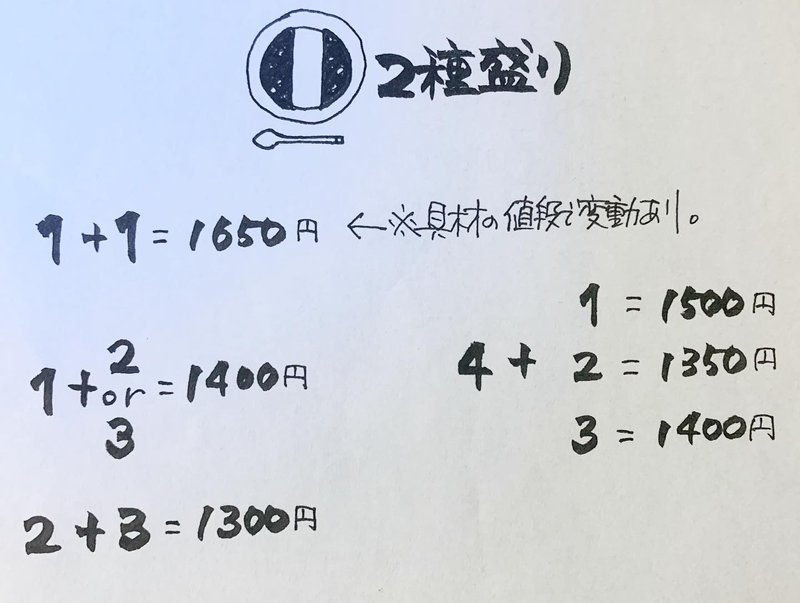 2種盛り
1+1=1650円 ←※具材の値段で変動あり。
1+2or3=1400円
2+3=1300円
4+
1=1500円
2=1350円
3=1400円